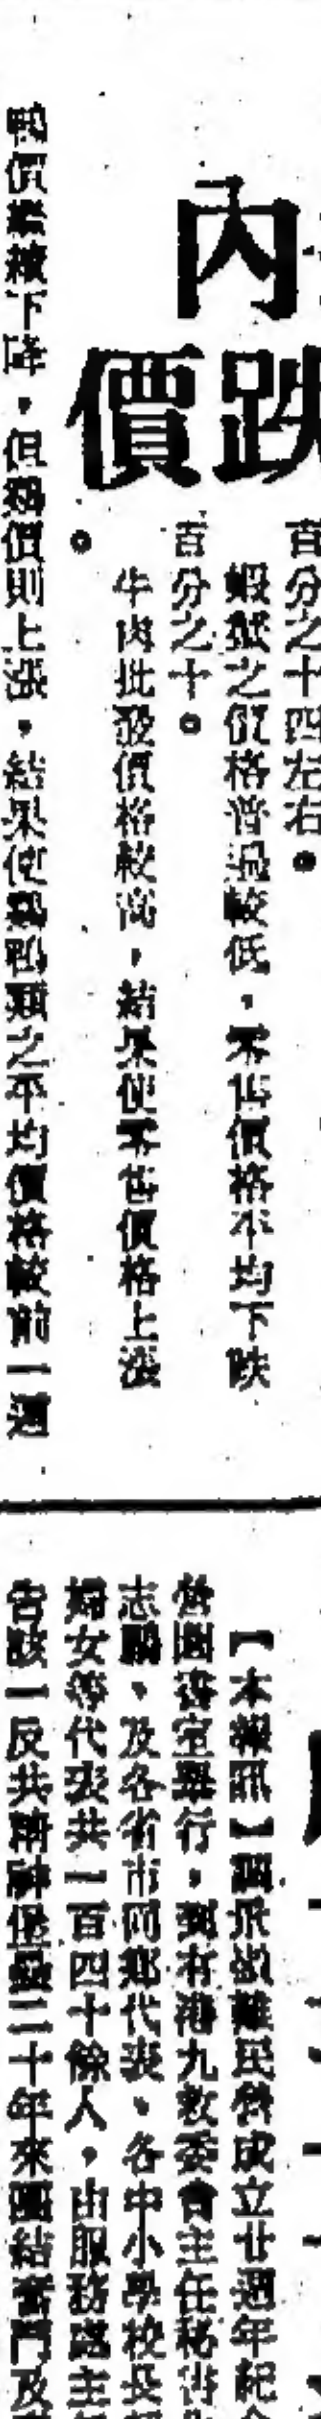 內
跌
價
百分之十四左右。
蝦蟹之價格普遍較低，零售價格平均下跌
百分之十。
牛肉批發價格較高，結果使零售價格上漲
。
鴨價繼續下降，但鷄價則上漲，結果使鷄鴨類之平均價格較前一週
【本報訊】調景嶺難民營成立廿週年紀念
營圖書室舉行，到有港九救委會主任秘書
志鵬、及各省市同鄉代表、各中小學校長
婦女等代表共一百四十餘人，由服務處主任
告該一反共精神堡壘二十年來團結奮鬥及